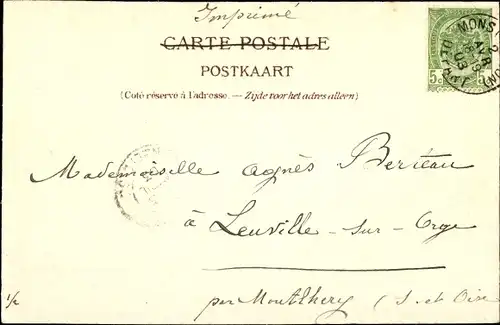 Imprimé
CARTE POSTALE
POSTKAART
(Coté réservé à l'adresse. — Zijde voor het adres alleen)
5c
MONS
DEPART
AVR
03
Mademoiselle Agnès Berteau
à Leuville-sur-Orge
par Montlhery (S. et Oise
1/2